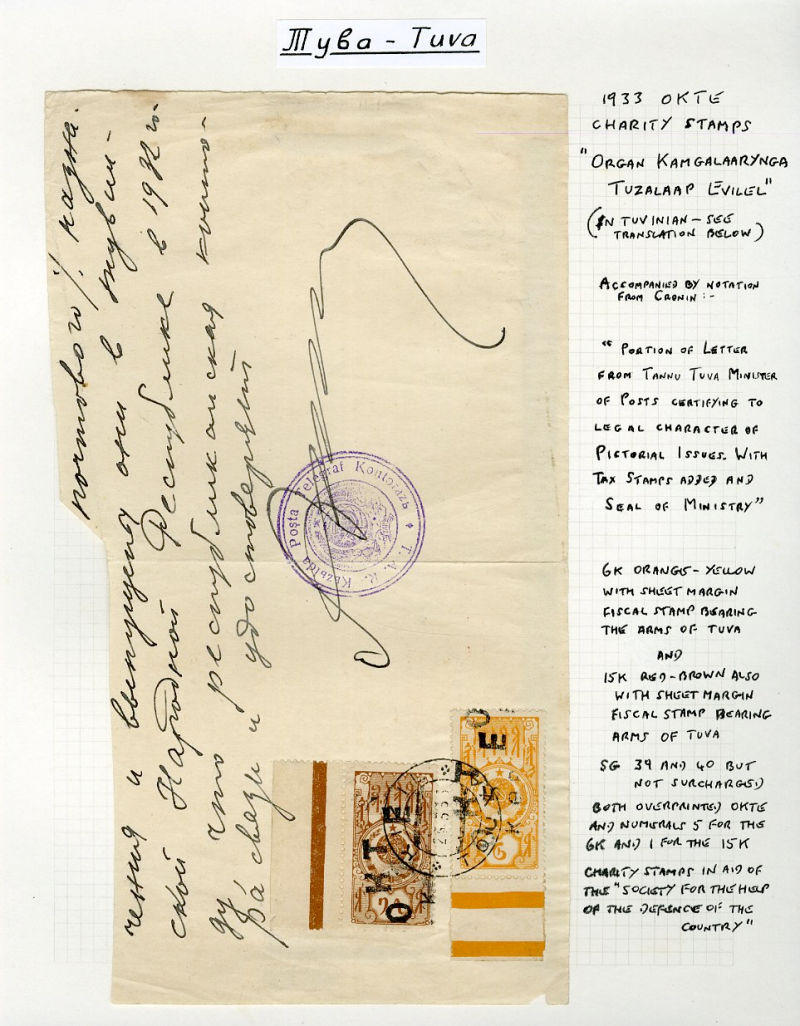 Тува - Tuva
1933 OKTE
CHARITY STAMPS
"ORGAN KAMGALAARYNGA
TUZALAAP EVILEL"
(IN TUVINIAN - SEE
TRANSLATION BELOW)
ACCOMPANIED BY NOTATION
FROM CRONIN :-
"PORTION OF LETTER
FROM TANNU TUVA MINISTER
OF POSTS CERTIFYING TO
LEGAL CHARACTER OF
PICTORIAL ISSUES. WITH
TAX STAMPS ADDED AND
SEAL OF MINISTRY"
6K ORANGE-YELLOW
WITH SHEET MARGIN
FISCAL STAMP BEARING
THE ARMS OF TUVA
AND
15K RED-BROWN ALSO
WITH SHEET MARGIN
FISCAL STAMP BEARING
ARMS OF TUVA
SG 39 AND 40 BUT
NOT SURCHARGED
BOTH OVERPRINTED OKTE
AND NUMERALS 5 FOR THE
6K AND 1 FOR THE 15K
CHARITY STAMPS IN AID OF
THE "SOCIETY FOR THE HELP
OF THE DEFENCE OF THE
COUNTRY"
почтового
чения и выпущены они в
ской Народной Республике в 1932 го-
ду что республиканская конто-
ра связи и удостоверяет
Posta Telegraf Kontorazь
T. A. R. Kьzыlda
OKTE